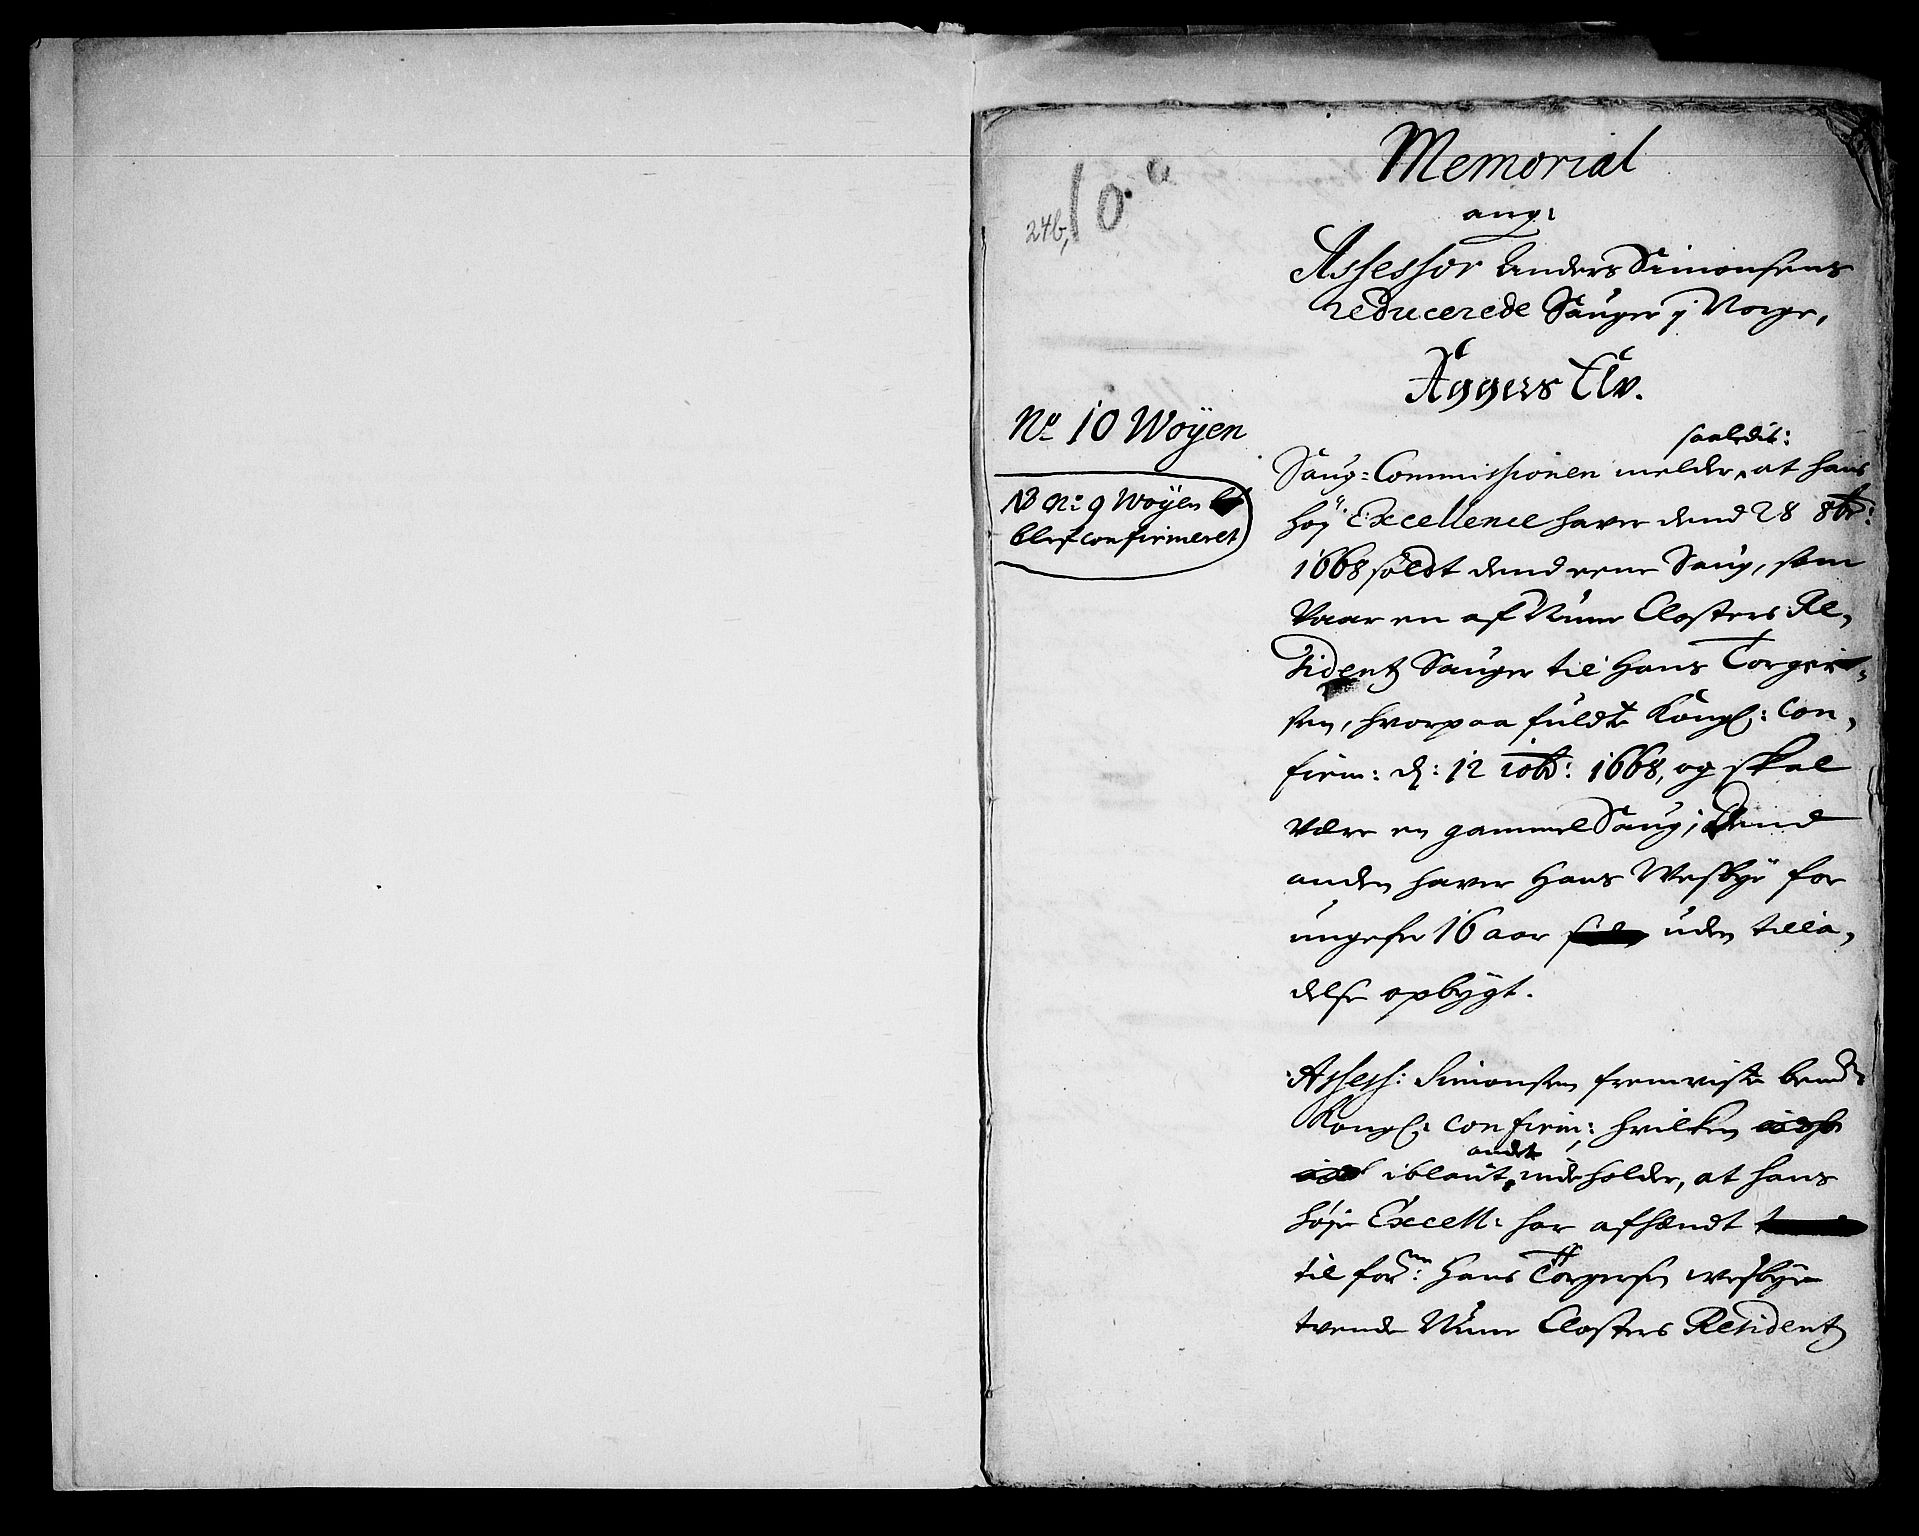 Memorial
ang:
Assessor Anders Simonsens
reducerede Sauger j Norge,
Aggers Elv.
24b,
10. a
No 10 Woÿen
NB No 9 Woÿen
blef confirmeret
saaledis:
Saug-Commissionen melder, at hans
høÿ Excellence haver dend 28 8br:
1668 soldt dend eene Saug, som
Vaar en af Nune Closters Re-
sident Sauger til Hans Torger-
sen, hvorpaa fuldte Kongl: Con-
firm: d: 12 10br: 1668, og skal
være en gammel Saug; Dend
anden haver Hans Wesbÿe for
ungefer 16 aar uden tilla-
delse opbÿgt.
Assess: Simonsen fremviste bemte
Kongl: Confirm: hvilken
andet
iblant indeholder, at hans
høje Excell: har afhændt
til for: Hans Torgersen Wesbÿe
tvende Nune Closters Resident